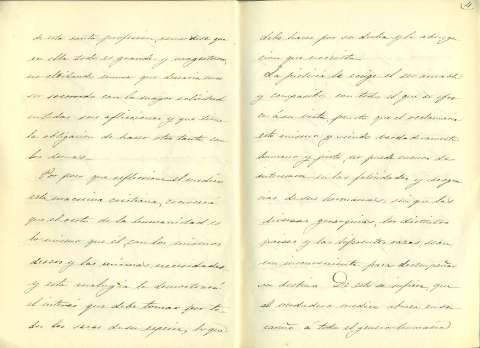 de esta santa profesion, considere que
en ella todo es grande y magestuoso,
no olvidando nunca que desearia
ser socorrido con la mayor solicitud
en todas sus aflicciones y que tiene
la obligacion de hacer otro tanto con
los demas.
Por poco que reflexione el medico
esta maxima cristiana, conocerá
que el resto de la humanidad es
lo mismo que él, con los mismos
deseos y las mismas necesidades
y esta analogia le demostrará
el interés que debe tomar por to-
dos los seres de su especie, lo que
4
debe hacer por su dicha y la
que necesita.
La justicia le exige el ser amable
y compasivo con todo el que se ofre-
ce á su vista, puesto que el reclama
esto mismo y siendo verdaderamente
humano y justo, no puede menos de
interesarse en las felicidades y desgra-
cias de sus hermanos, sin que las
diversas gerarquias, los distintos
paises y las diferentes razas sean
un inconveniente para desempeñar
su destino. De esto se infiere, que
el verdadero medico abraza en su
cariño á todo el genero humano